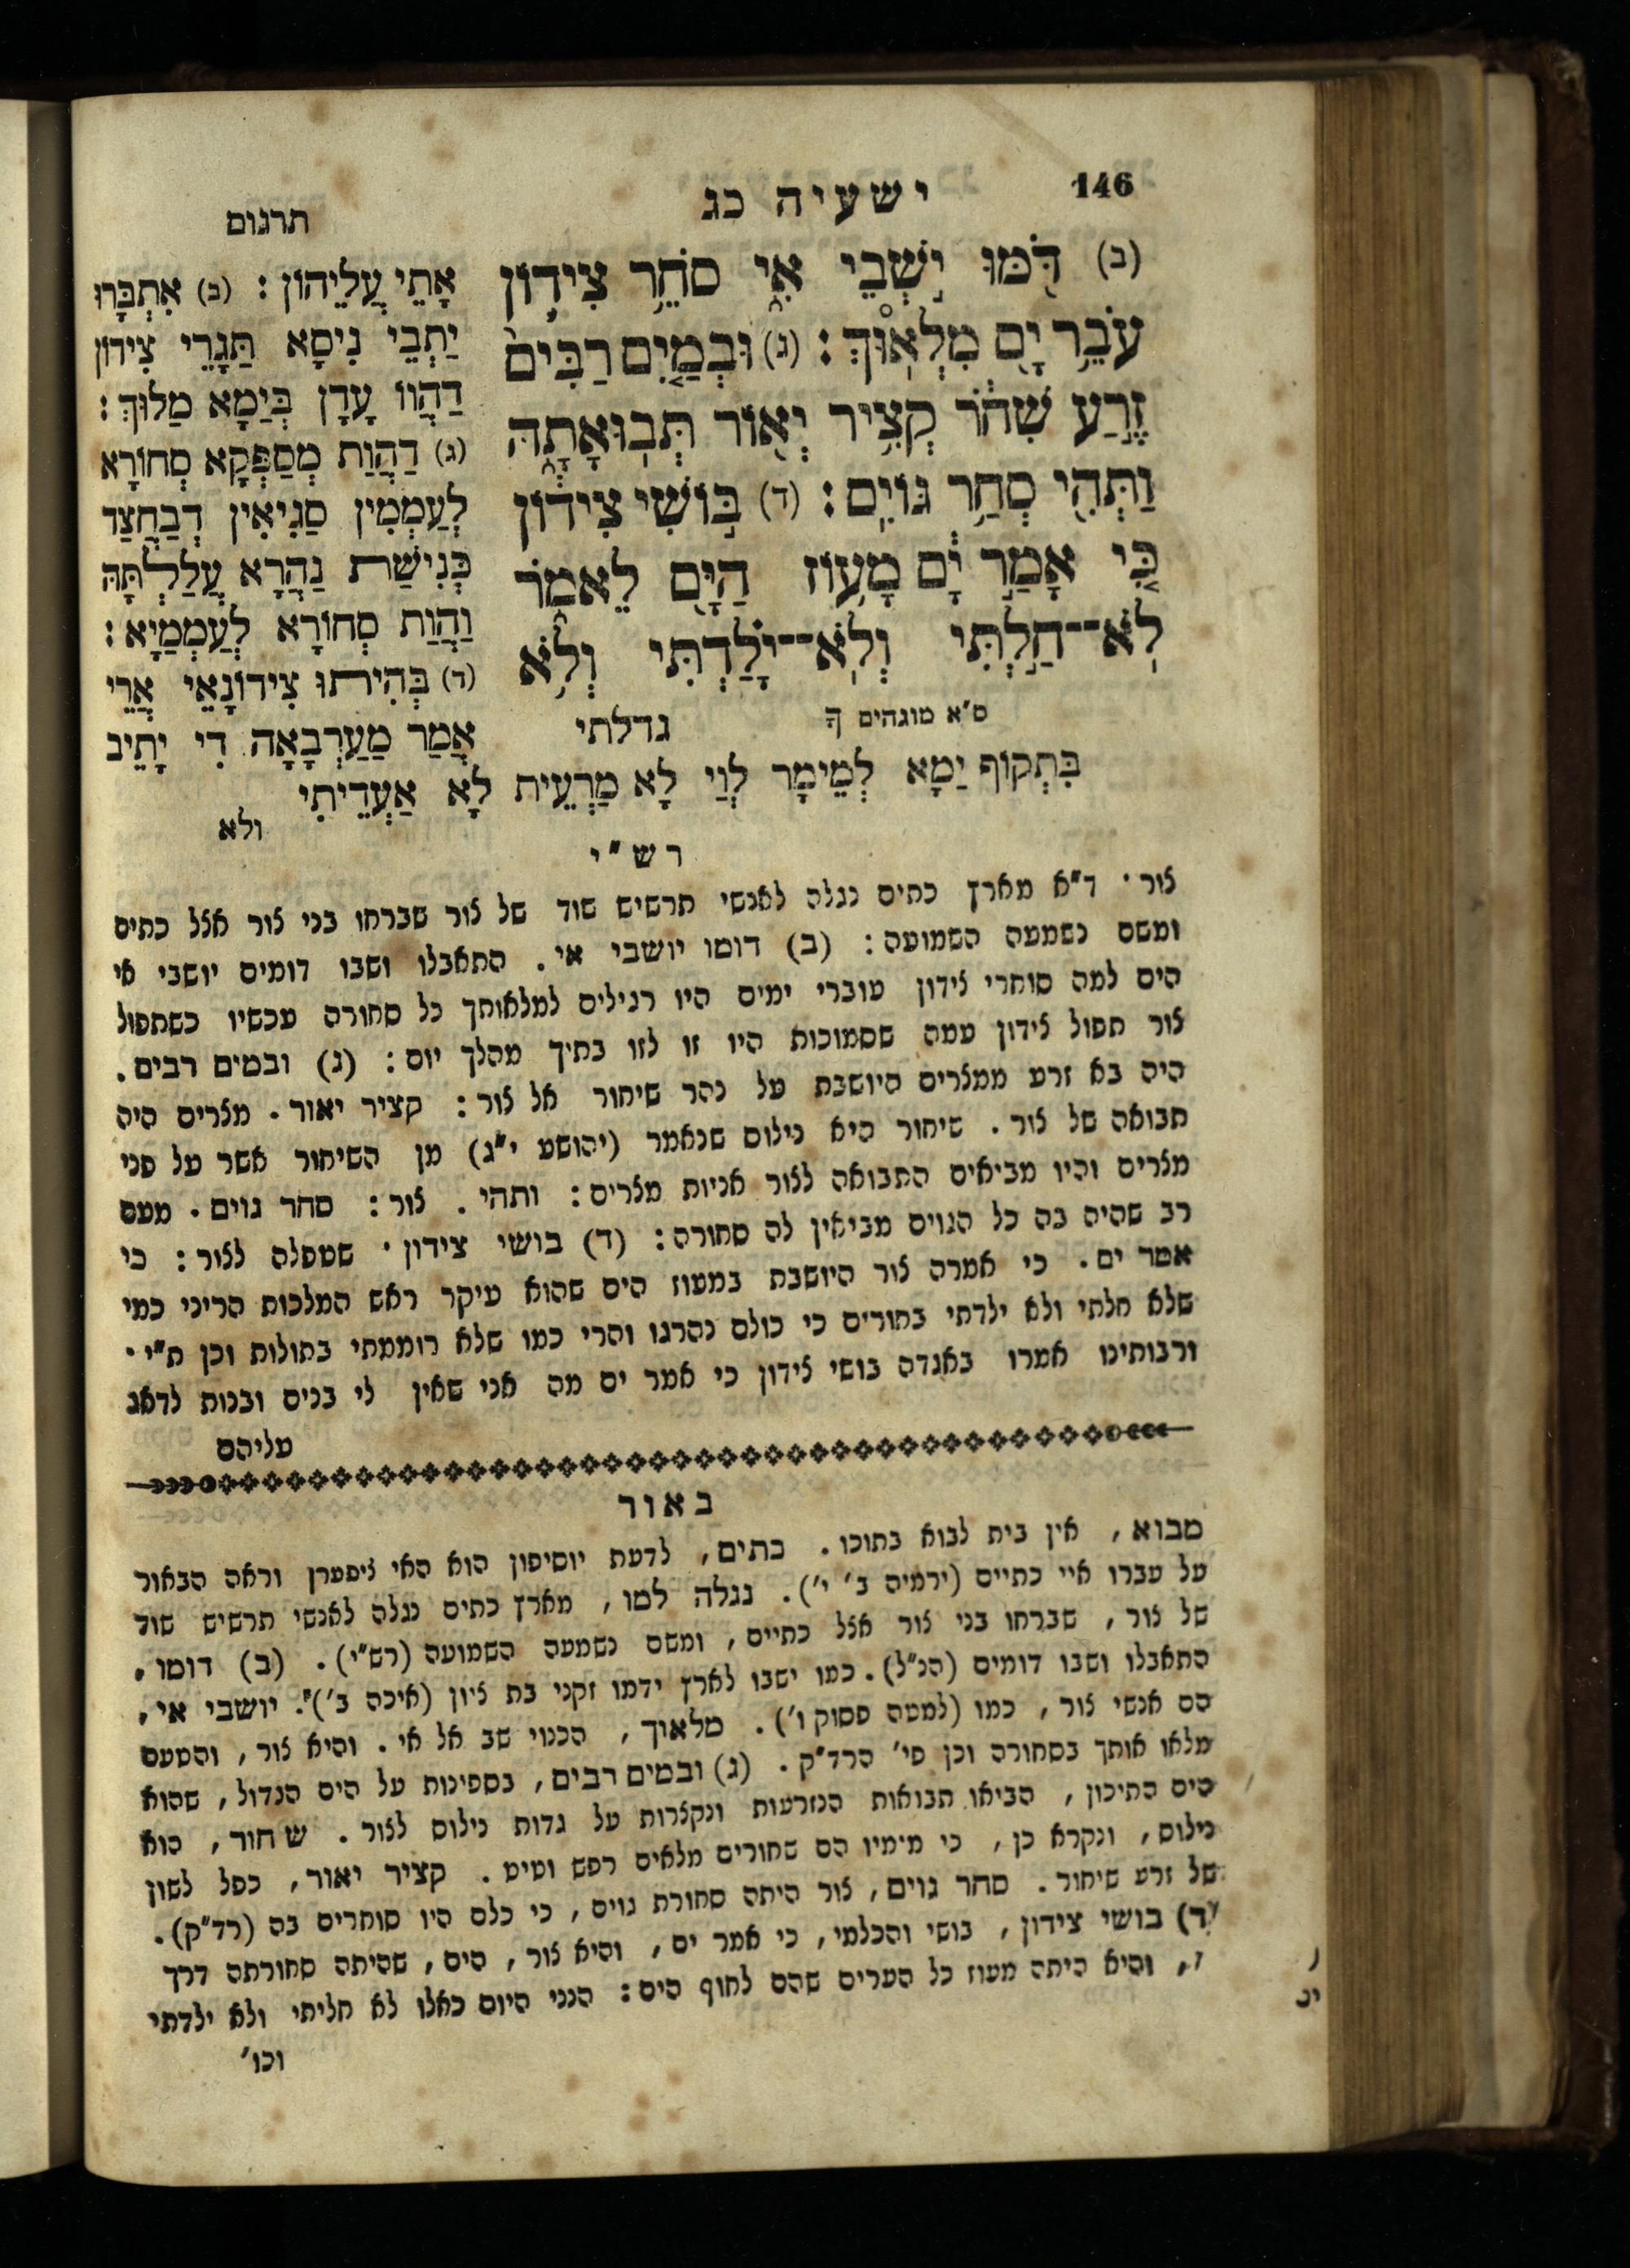 146
ישעיה כג
תרגום
(ב) דֹּ֖מּוּ יֹ֣שְׁבֵי אִ֑י סֹחֵ֥ר צִיד֛וֹן
עֹבֵ֥ר יָ֖ם מִלְא֥וּךְ׃ (ג) וּבְמַ֤יִם רַבִּים֙
זֶ֣רַע שִׁחֹ֔ר קְצִ֥יר יְא֖וֹר תְּבֽוּאָתָ֑הּ
וַתְּהִ֖י סְחַ֥ר גּוֹיִֽם׃ (ד) בּ֣וֹשִׁי צִיד֔וֹן
כִּֽי אָמַ֣ר יָ֔ם מָע֥וֹז הַיָּ֖ם לֵאמֹ֑ר
לֹֽא־חַ֣לְתִּי וְלֹֽא־יָלַ֗דְתִּי וְלֹ֥א
ס׳א מוגהים ךָ
גדלתי
אָתֵי עֲלֵיהוֹן: (ב) אִתְבָּרוּ
יַתְבֵי נִיסָא תַּגָרֵי צִידוֹן
דַהֲווֹ עָדָן בְּיַמָא מַלוּךְ:
(ג) דַהֲוַת מְסַפְּקָא סְחוֹרָא
לְעַמְמִין סַגִיאִין דְבַחֲצַד
כְּנִישַׁת נַהֲרָא עֲלַלְתָּהּ
וַהֲוַת סְחוֹרָא לְעַמְמַיָא:
(ד) בְּהִיתוּ צִידוֹנָאֵי אֲרֵי
אֲמַר מַעַרְבָאָה דִי יָתֵיב
בִּתְקוֹף יַמָא לְמֵימָר לְוַי לָא מָרְעֵית לָא אַעְדֵיתִי
ולא
רש״י
צור. ד״א מארץ כתים נגלה לאנשי תרשיש שוד של צור שברחו בני צור אצל כתים
ומשם נשמעה השמועה: (ב) דומו יושבי אי. התאבלו ושבו דומים יושבי אי
הים למה סוחרי צידון עוברי ימים היו רגילים למלאותך כל סחורה עכשיו כשתפול
צור תפול צידון עמה שסמוכות היו זו לזו בתיך מהלך יום: (ג) ובמים רבים.
היה בא זרע ממצרים היושבת על נהר שיחור אל צור: קציר יאור. מצרים היה
תבואה של צור. שיחור היא נילוס שנאמר (יהושע י״ג) מן השיחור אשר על פני
מצרים והיו מביאים התבואה לצור אניות מצרים: ותהי. צור: סחר גוים. מעם
רב שהיה בה כל הגוים מביאין לה סחורה: (ד) בושי צידון. שמפלה לצור: כי
אמר ים. כי אמרה צור היושבת במעוז הים שהוא עיקר ראש המלכות הריני כמי
שלא חלתי ולא ילדתי בחורים כי כולם נהרגו והרי כמו שלא רוממתי בתולות וכן ת״י.
ורבותינו אמרו באגדה בושי צידון כי אמר ים מה אני שאין לי בנים ובנות לדאג
עליהם
באור
מבוא, אין בית לבוא בתוכו. כתים, לדעת יוסיפון הוא האי ציפערן וראה הבאור
על עברו איי כתיים (ירמיה ב׳ י׳). נגלה למו, מארץ כתים נגלה לאנשי תרשיש שוד
של צור, שברחו בני צור אצל כתיים, ומשם נשמעה השמועה (רש״י). (ב) דומו,
התאבלו ושבו דומים (הנ״ל). כמו ישבו לארץ ידמו זקני בת ציון (איכה ב׳ י׳). יושבי אי,
הם אנשי צור, כמו (למטה פסוק ו׳). מלאוך, הכנוי שב אל אי. והיא צור, והטעם
מלאו אותך בסחורה וכן פי׳ הרד״ק. (ג) ובמים רבים, בספינות על הים הגדול, שהוא
הים התיכון, הביאו תבואות הנזרעות ונקצרות על גדות נילוס לצור. שחור, הוא
נילוס, ונקרא כן, כי מימיו הם שחורים מלאים רפש וטיט. קציר יאור, כפל לשון
של זרע שיחור. סחר גוים, צור היתה סחורת גוים, כי כלם היו סוחרים בה (רד״ק).
(ד) בושי צידון, בושי והכלמי, כי אמר ים, והיא צור, הים, שהיתה סחורתה דרך
והיא היתה מעוז כל הערים שהם לחוף הים: הנני היום כאלו לא חליתי ולא ילדתי
וכו׳